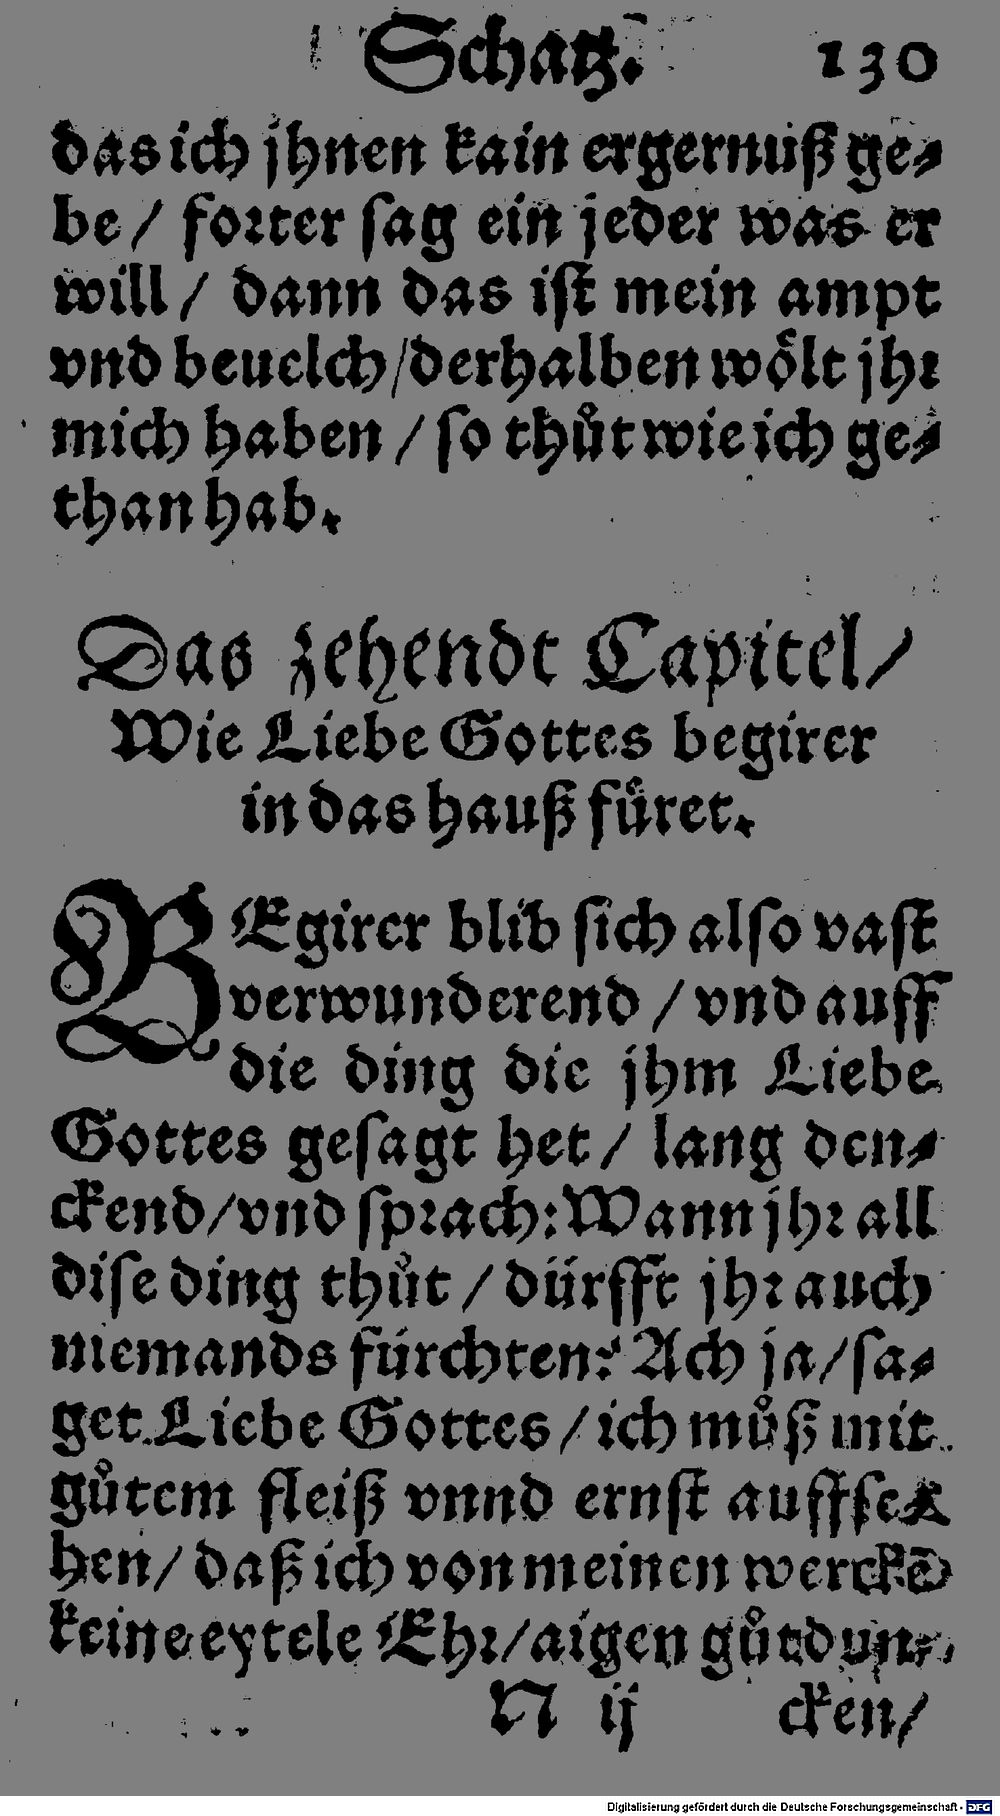 Schatz. 130
das ich jhnen kain ergernuß ge⸗
be / forter ſag ein jeder was er
will / dann das iſt mein ampt
vnd beuelch / derhalben woͤlt jhr
mich haben / ſo thuͦt wie ich ge⸗
than hab.
Das zehendt Capitel /
Wie Liebe Gottes begirer
in das hauß fuͤret.
BEgirer blib ſich alſo vaſt
verwunderend / vnd auff
die ding die jhm Liebe
Gottes geſagt het / lang den⸗
ckend / vnd ſprach: Wann jhr all
diſe ding thuͦt / dürfft jhr auch
niemands fürchten? Ach ja / ſa⸗
get Liebe Gottes / ich muͦß mit
guͦtem fleiß vnnd ernſt auffſe⸗
hen / daß ich von meinen werckē
keine eytele Ehr / aigen guͦtdun⸗
N ij cken /
Digitalisierung gefördert durch die Deutsche Forschungsgemeinschaft - DFG